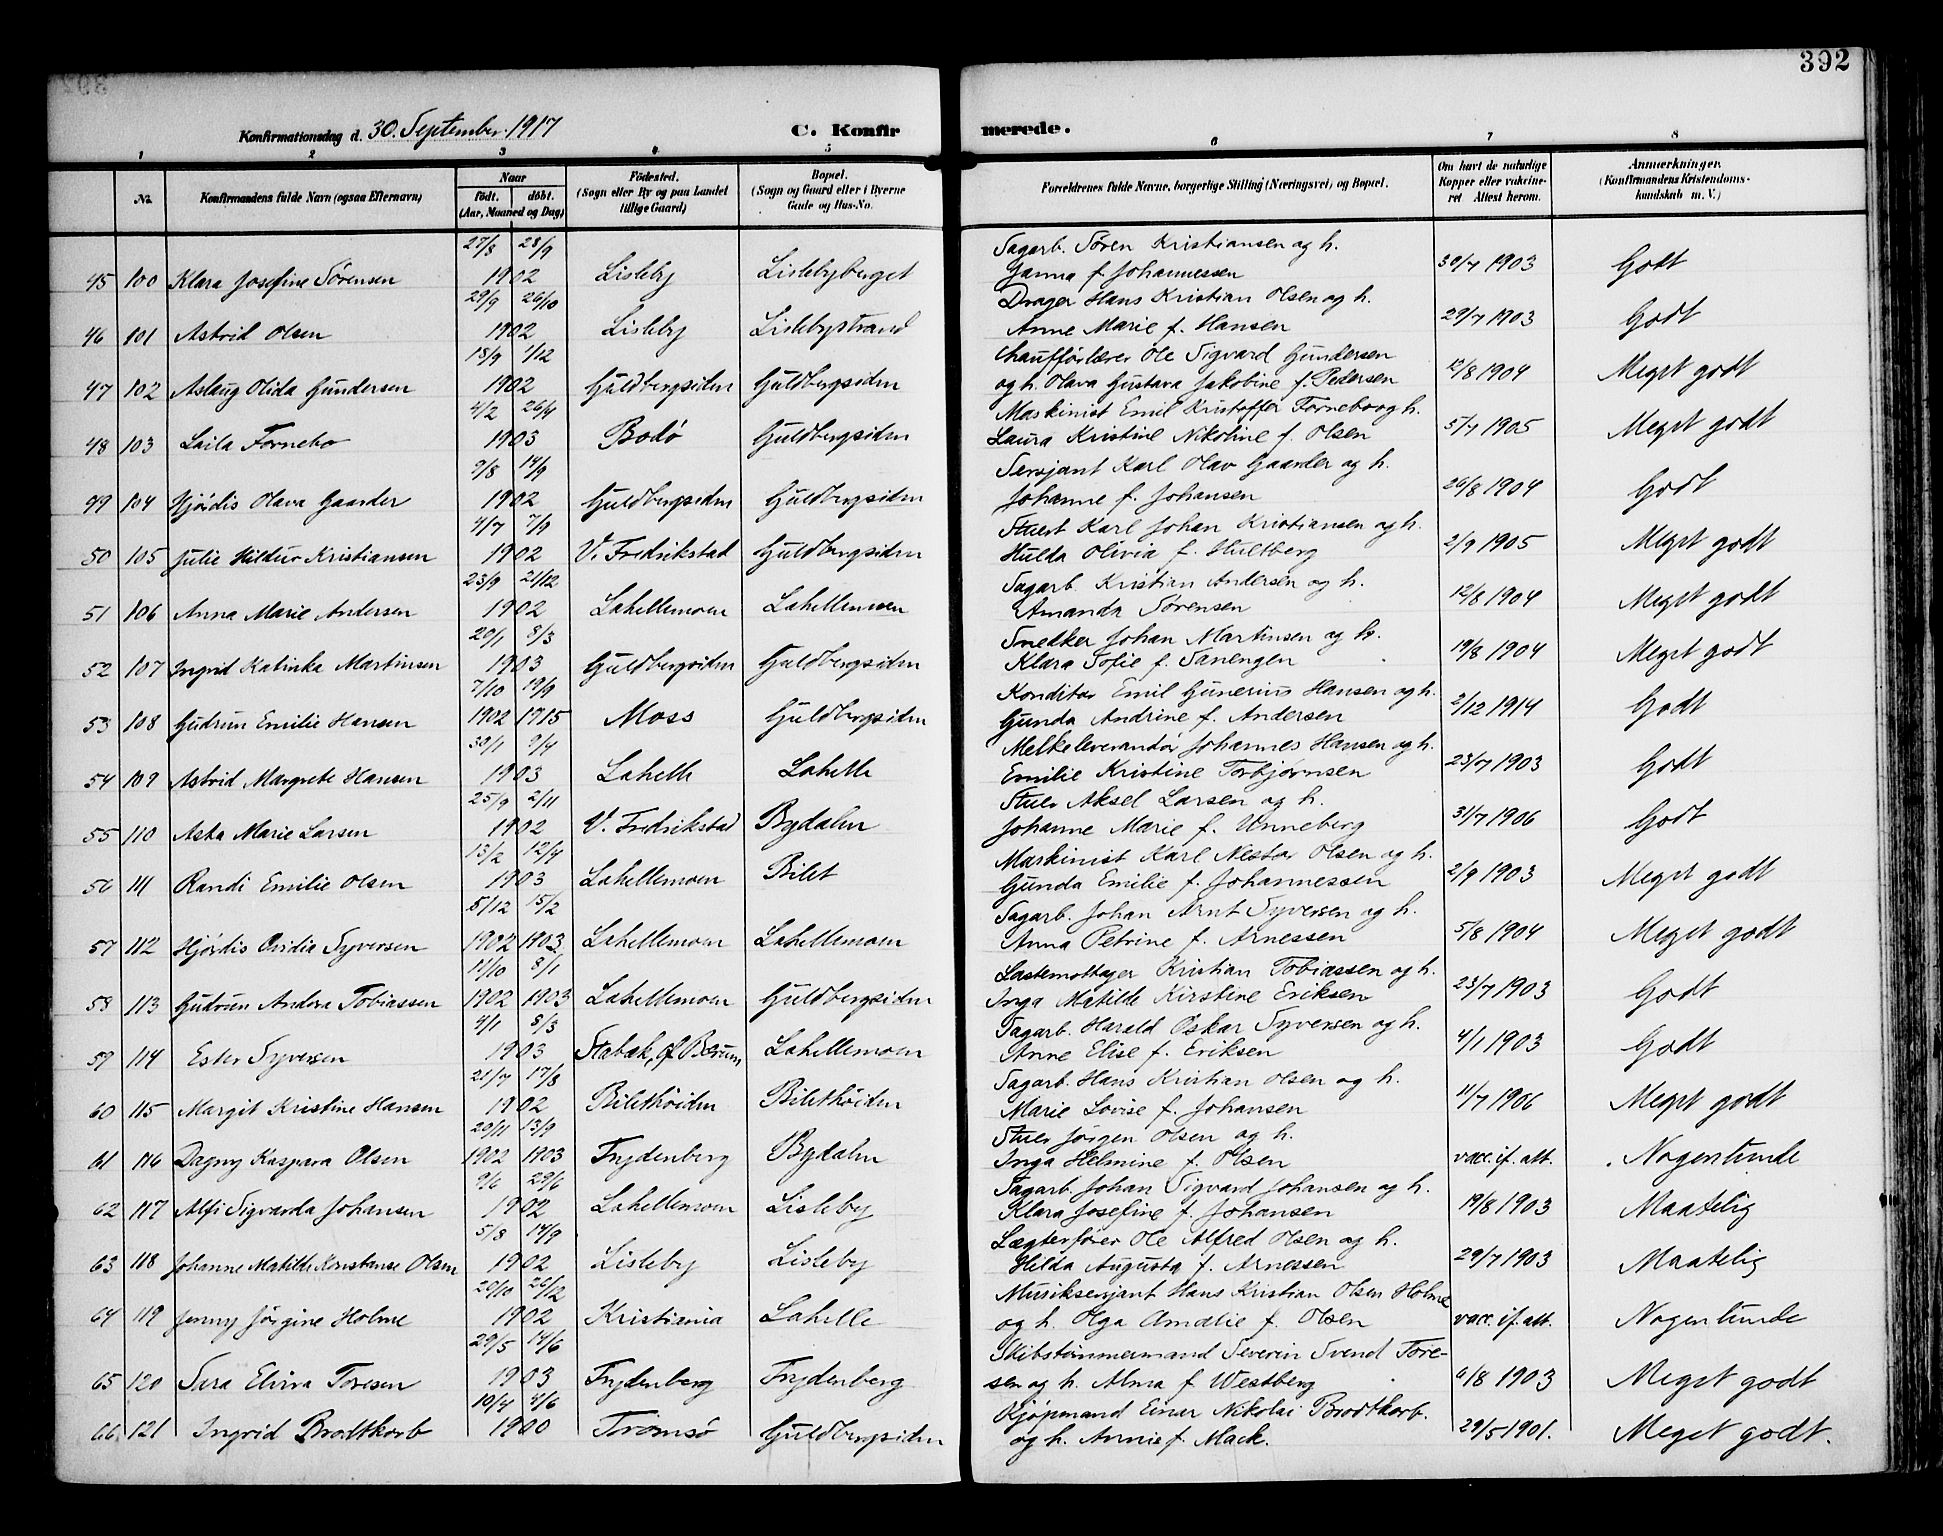 392
Konfirmationsdag d. 30. September 1917 C. Konfirmerede.
1 2 3 4 5 6 7 8
No. Konfirmandens fulde Navn (ogsaa Efternavn) Naar født. døbt. (Aar, Maaned og Dag) Fødested. (Sogn eller By og paa Landet tillige Gaard) Bopæl. (Sogn og Gaard eller i Byerne Gade og Hus-No. Forældrenes fulde Navne, borgerlige Stilling (Næringsvei) og Bopæl. Om havt de naturlige Kopper eller vakcineret Attest herom. Anmærkninger. (Konfirmandens Kristendomskundskab m. V.)
27/8 28/9 Sagarb. Søren Kristiansen og h.
45 100 Klara Josefine Sørensen 1902 Lisleby Lislebyberget Janna f. Johannessen 30/7 1903 Godt
29/9 26/10 Drager Hans Kristian Olsen og h.
46 101 Astrid Olsen 1902 Lisleby Lislebystrand Anne Marie f. Hansen 29/7 1903 Godt
18/9 1/12 Chaufførlærer Ole Sigvard Gundersen
47 102 Aslaug Olida Gundersen 1902 Guldbergsiden Guldbergsiden og h. Olava Gustava Jakobine f. Pedersen 12/8 1904 Meget godt
4/2 26/4 Maskinist Emil Kristoffer Fornebo og h.
48 103 Laila Fornebo 1903 Bodø Guldbergsiden Laura Kristine Nikoline f. Olsen 5/7 1905 Meget godt
9/8 14/9 Sersjant Karl Olav Gaarder og h.
49 104 Hjørdis Olava Gaarder 1902 Guldbergsiden Guldbergsiden Johanne f. Johansen 26/8 1904 Godt
4/7 7/9 Stuert Karl Johan Kristiansen og h.
50 105 Julie Hildur Kristiansen 1902 V. Fredrikstad Guldbergsiden Hulda Olivia f. Hultberg 2/9 1905 Meget godt
23/9 21/12 Sagarb. Kristian Andersen og h.
51 106 Anna Marie Andersen 1902 Lahellemoen Lahellemoen Amanda Sørensen 12/8 1904 Meget godt
20/1 8/3 Snedker Johan Martinsen og h.
52 107 Ingrid Katinka Martinsen 1903 Guldbergsiden Guldbergsiden Klara Sofie f. Sanengen 19/8 1904 Meget godt
7/10 19/9 Konditor Emil Gunerius Hansen og h.
53 108 Gudrun Emilie Hansen 1902 1915 Moss Guldbergsiden Gunda Andrine f. Andersen 2/12 1914 Godt
30/1 9/4 Melkeleverandør Johannes Hansen og h.
54 109 Astrid Margrete Hansen 1903 Lahelle Lahelle Emilie Kristine Torbjørnsen 23/7 1903 Godt
25/9 2/11 Stuer Aksel Larsen og h.
55 110 Asta Marie Larsen 1902 V. Fredrikstad Bydalen Johanne Marie f. Unneberg 31/7 1906 Godt
13/2 12/4 Maskinist Karl Nestor Olsen og h.
56 111 Randi Emilie Olsen 1903 Lahellemoen Bilet Gunda Emilie f. Johannessen 2/9 1903 Meget godt
5/12 15/2 Sagarb. Johan Arnt Syversen og h.
57 112 Hjørdis Ovidia Syversen 1902 1903 Lahellemoen Lahellemoen Anna Petrine f. Arnessen 5/8 1904 Meget godt
11/10 8/1 Lastemottager Kristian Tobiassen og h.
58 113 Gudrun Andora Tobiassen 1902 1903 Lahellemoen Guldbergsiden Inga Matilde Kirstine Eriksen 23/7 1903 Godt
4/1 8/3 Sagarb. Harald Oskar Syversen og h.
59 114 Ester Syversen 1903 Stabæk, Bærum Lahellemoen Anne Elise f. Eriksen 4/1 1903 Godt
21/7 17/8 Sagarb. Hans Kristian Olsen og h.
60 115 Margit Kristine Hansen 1902 Bilethöiden Bilethöiden Marie Lovise f. Johansen 11/7 1906 Meget godt
20/11 13/9 Stuer Jörgen Olsen og h.
61 116 Dagny Kaspara Olsen 1902 1903 Frydenberg Bydalen Inga Helmine f. Olsen vacc. if. att. Nogenlunde
9/6 29/6 Sagarb. Johan Sigvard Johansen og h.
62 117 Alfi Sigvarda Johansen 1902 Lahellemoen Lisleby Klara Josefine f. Johansen 19/8 1903 Maatelig
5/8 14/9 Lægterfører Ole Alfred Olsen og h.
63 118 Johanne Matilde Konstanse Olsen 1902 Lisleby Lisleby Hilda Augusta f. Arnessen 29/7 1903 Maatelig
20/10 26/12 Musiksersjant Hans Kristian Olsen Holme
64 119 Jenny Jörgine Holme 1902 Kristiania Lahelle og h. Olga Amalie f. Olsen vacc. if. att. Nogenlunde
29/5 14/6 Skibstømmermand Severin Svend Tore-
65 120 Sara Elvira Toresen 1903 Frydenberg Frydenberg sen og h. Alma f. Westberg 6/8 1903 Meget godt
10/4 4/6 Kjøpmand Einar Nikolai Brodtkorb.
66 121 Ingrid Brodtkorb 1900 Tromsö Guldbergsiden og h. Annie f. Mack. 29/5 1901. Meget godt.